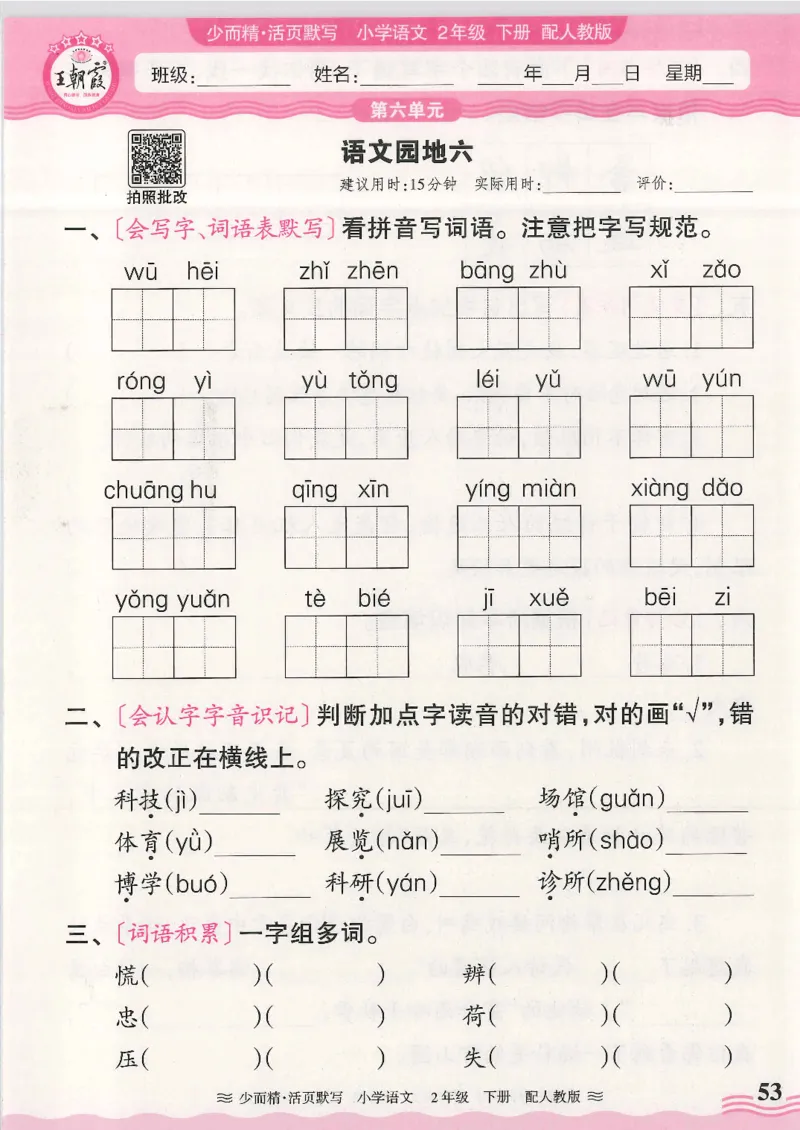 少而精·活页默写 小学语文 2年级 下册 配人教版
王朝霞
班级:________ 姓名:________ ____年___月___日 星期___
第六单元
语文园地六
拍照批改
建议用时:15分钟 实际用时:________ 评价:________
一、〔会写字、词语表默写〕看拼音写词语。注意把字写规范。
wū hēi zhǐ zhēn bāng zhù xǐ zǎo
róng yì yù tǒng léi yǔ wū yún
chuāng hu qīng xīn yíng miàn xiàng dǎo
yǒng yuǎn tè bié jī xuě bēi zi
二、〔会认字字音识记〕判断加点字读音的对错,对的画“√”,错
的改正在横线上。
科技(jì)________ 探究(juī)________ 场馆(guǎn)________
体育(yǜ)________ 展览(nǎn)________ 哨所(shào)________
博学(buó)________ 科研(yán)________ 诊所(zhěng)________
三、〔词语积累〕一字组多词。
慌( )( ) 辨( )( )
忠( )( ) 荷( )( )
压( )( ) 失( )( )
少而精·活页默写 小学语文 2年级 下册 配人教版
53